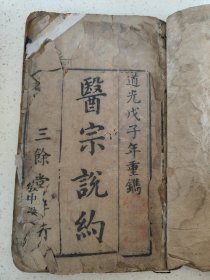 道光戊子年重鐫
醫宗說約
三餘堂